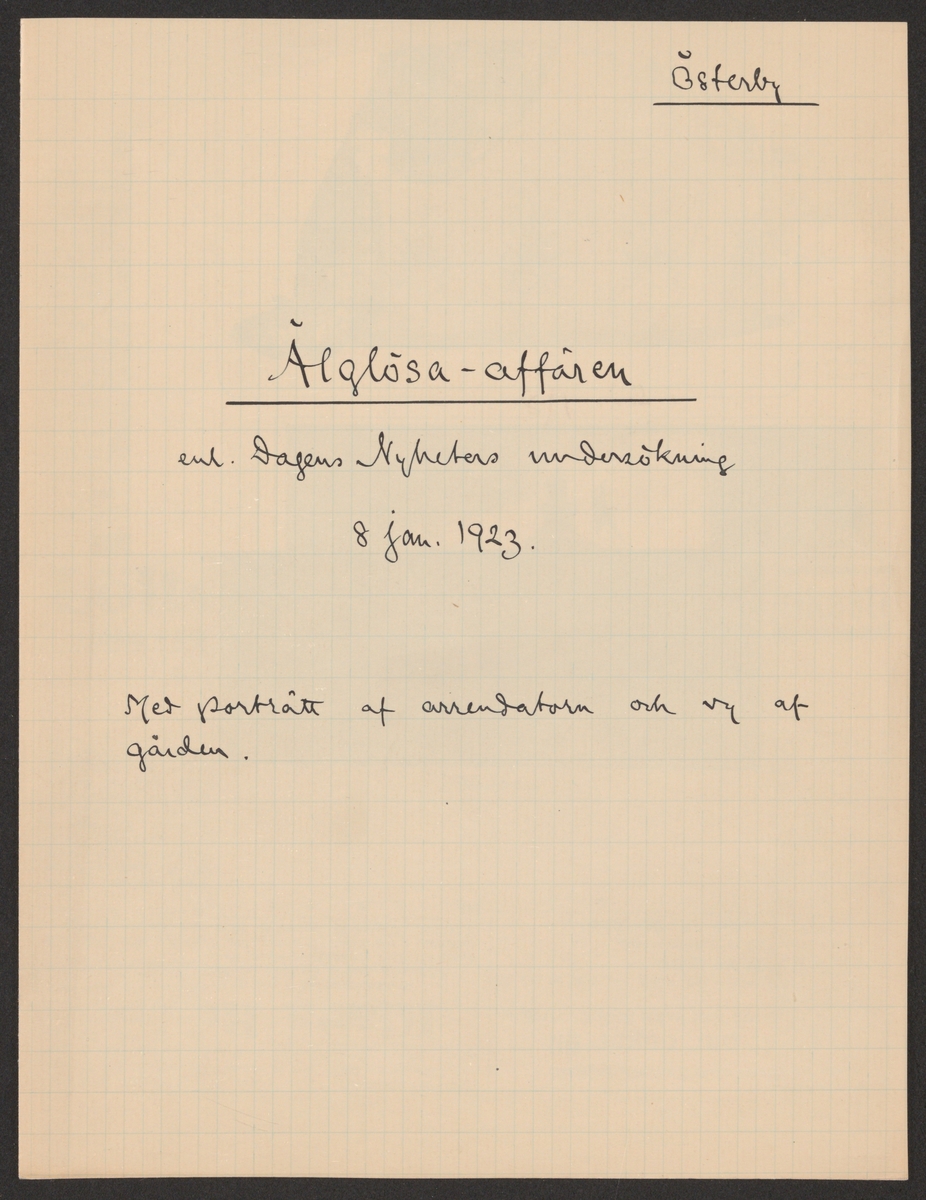 Österby
Älglösa-affären
enl. Dagens Nyheters undersökning
8 jan. 1923.
Med porträtt af arrendatorn och vy af
gården.